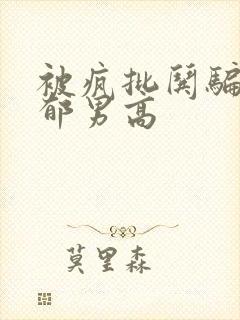 被疯批闺骗
郁男高
莫里森